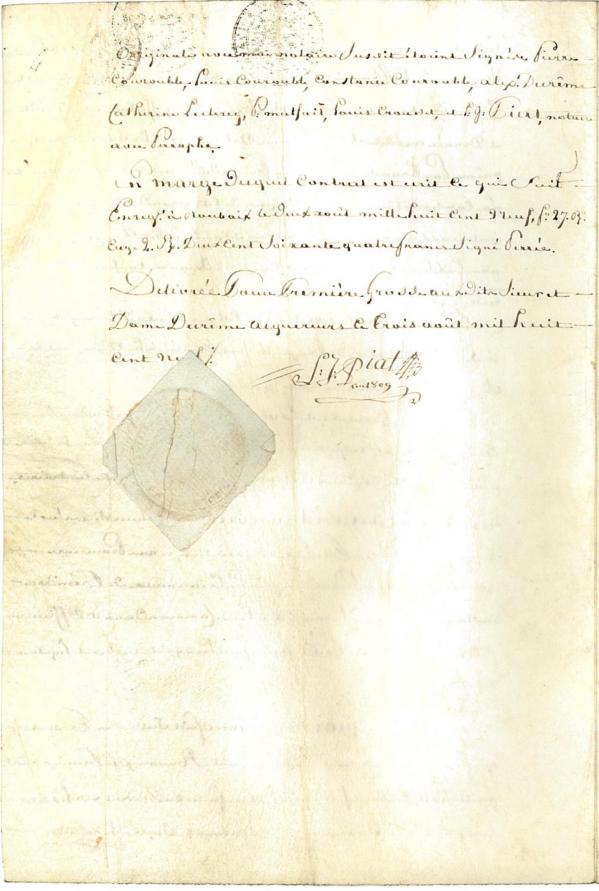 Original avec moi notaire Susdit étoient Signés Pierre
Courouble, Louis Courouble, Constance Courouble, alexd. Decrême
Catherine Leclercq, P. malfait, Louis Crousel, et L. J. Piat, notaire
avec Paraphe.
En marge Duquel Contrat est écrit Ce qui Suit
Enregé. à Roubaix le deux août mille huit Cent Neuf, fo. 27. Ro.
Case 2. Rç. Deux Cent Soixante quatre francs Signé Pirée.
Délivrée Pour Première Grosse aux dits Sieur et
Dame Decrême acquereurs Ce trois août mil huit
Cent Neuf /.
L. J. Piat
an 1809